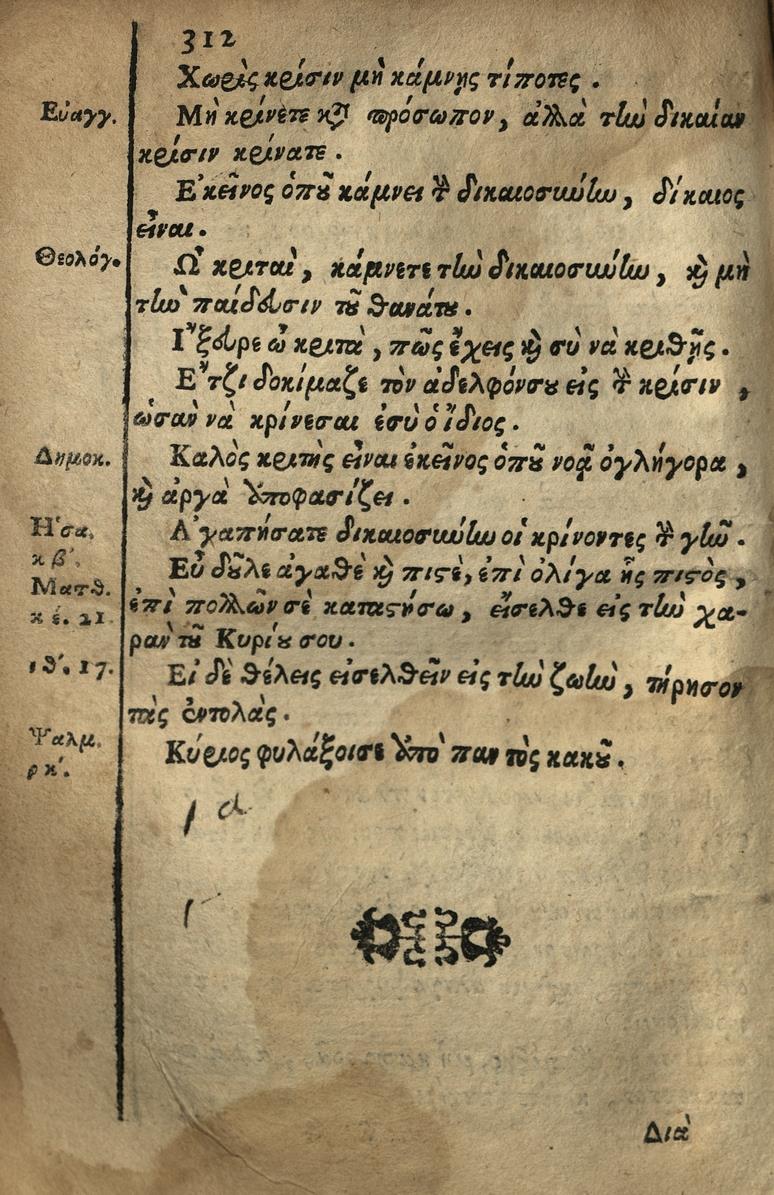 312
Χωρὶς κρίσιν μὴ κάμνῃς τίποτες .
Εὐαγγ.
Μὴ κρίνετε κτ̀ πρόσωπον, ἀλλὰ τὴν δικαίαν
κρίσιν κρίνατε .
Ε᾿κεῖνος ὁποῦ κάμνει τὴν δικαιοσύνην, δίκαιος
εἶναι .
Θεολόγ.
Ω῏ κριταὶ, κάμνετε τὴν δικαιοσύνην, καὶ μὴ
τὴν παίδευσιν τοῦ θανάτου .
Ι῎ξευρε ὦ κριτὰ, πῶς ἔχεις καὶ σὺ νὰ κριθῇς .
Ε῎τζι δοκίμαζε τὸν ἀδελφόνσου εἰς τὴν κρίσιν ,
ὡσὰν νὰ κρίνεσαι ἐσὺ ὁ ἴδιος .
Δημοκ.
Καλὸς κριτὴς εἶναι ἐκεῖνος ὁποῦ νοᾷ ὀγλήγορα ,
καὶ ἀργὰ ἀποφασίζει .
Η῾σα.
Α᾿γαπήσατε δικαιοσύνην οἱ κρίνοντες τὴν γῆν .
κβ΄.
Εὖ δοῦλε ἀγαθὲ καὶ πιστὲ, ἐπὶ ὀλίγα ἦς πιστὸς ,
Ματθ.
ἐπὶ πολλῶν σὲ καταστήσω, εἴσελθε εἰς τὴν χα-
κέ. 21.
ρὰν τοῦ Κυρίου σου .
ιθ΄. 17.
Εἰ δὲ θέλεις εἰσελθεῖν εἰς τὴν ζωὴν, τήρησον
τὰς ἐντολὰς .
Ψαλμ.
ρκ΄.
Κύριος φυλάξοισε ἀπὸ παντὸς κακοῦ .
Διὰ